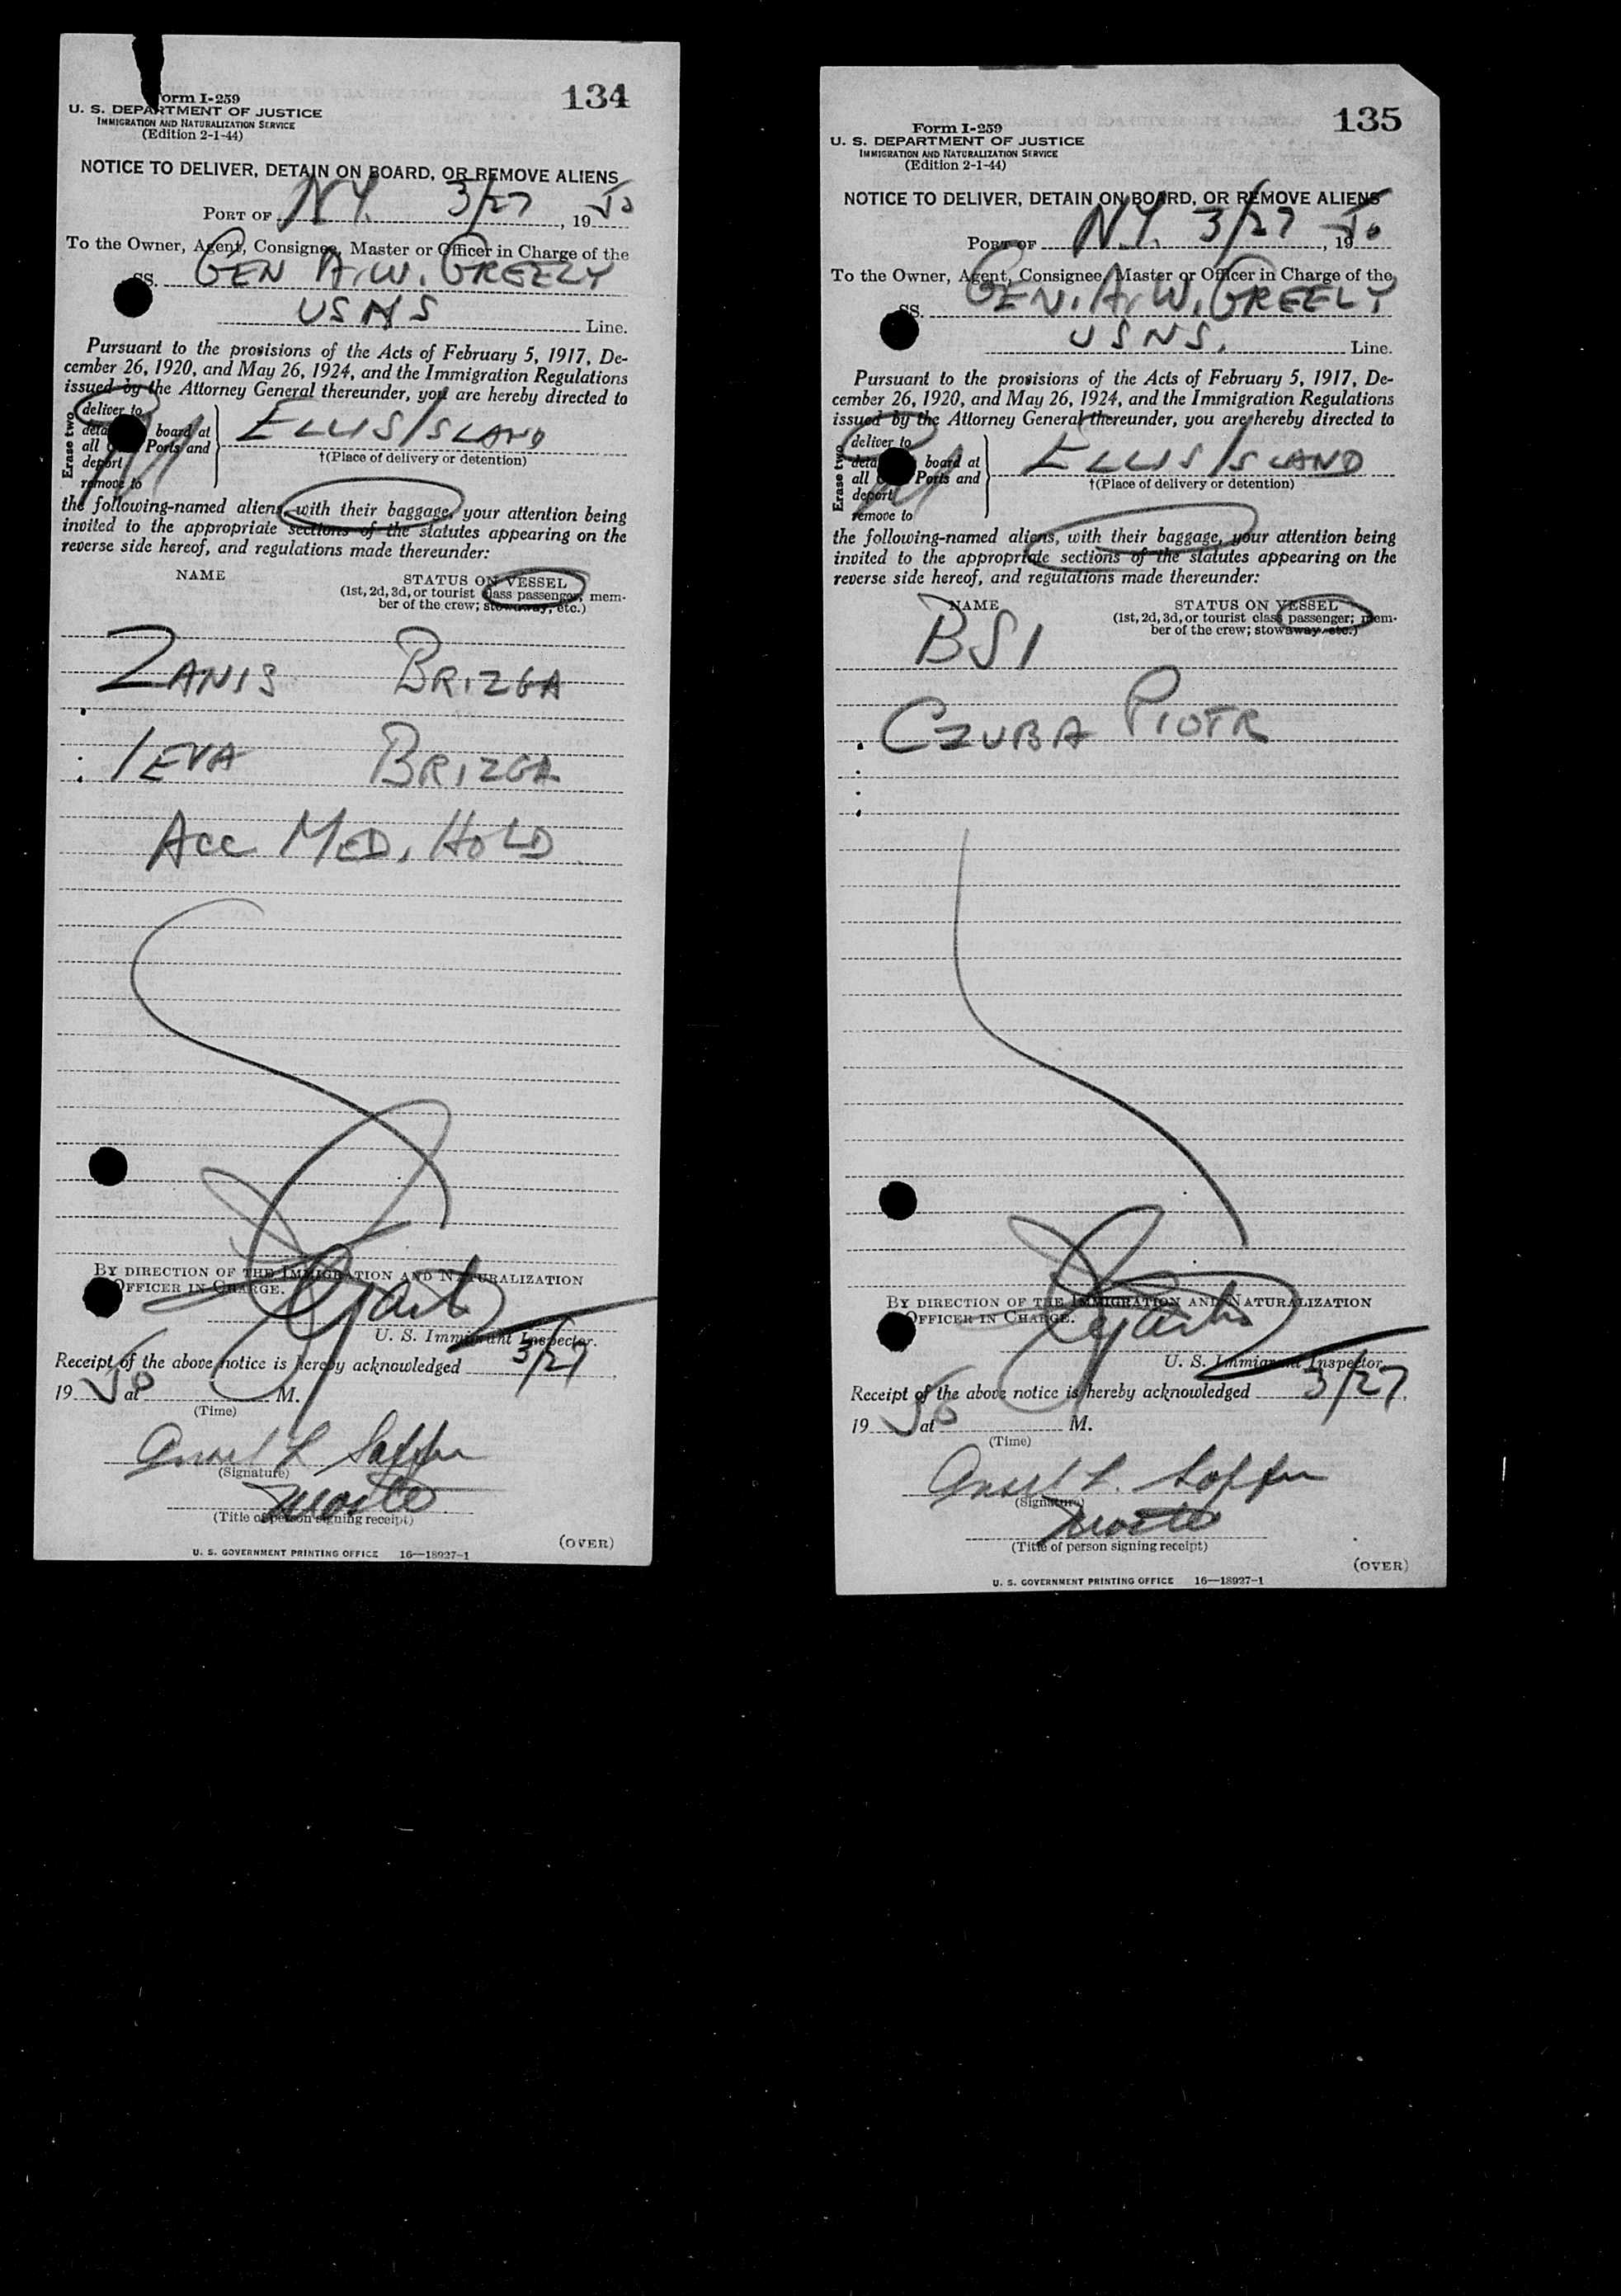 134
Form I-259
U. S. DEPARTMENT OF JUSTICE
IMMIGRATION AND NATURALIZATION SERVICE
(Edition 2-1-44)
NOTICE TO DELIVER, DETAIN ON BOARD, OR REMOVE ALIENS
PORT OF N.Y. 3/27, 1950
To the Owner, Agent, Consignee, Master or Officer in Charge of the
SS. GEN A.W. GREELY
USNS Line.
Pursuant to the provisions of the Acts of February 5, 1917, De-
cember 26, 1920, and May 26, 1924, and the Immigration Regulations
issued by the Attorney General thereunder, you are hereby directed to
Erase two
deliver to
board at
all Ports and
deport
remove to
ELLIS ISLAND
†(Place of delivery or detention)
the following-named aliens, with their baggage, your attention being
invited to the appropriate sections of the statutes appearing on the
reverse side hereof, and regulations made thereunder:
NAME STATUS ON VESSEL
(1st, 2d, 3d, or tourist class passenger; mem-
ber of the crew; stowaway, etc.)
ZANIS BRIZGA
IEVA BRIZGA
ACC MED. HOLD
BY DIRECTION OF THE IMMIGRATION AND NATURALIZATION
OFFICER IN CHARGE.
U. S. Immigrant Inspector.
Receipt of the above notice is hereby acknowledged 3/27,
1950 at M.
(Time)
(Signature)
(Title of person signing receipt)
(OVER)
U. S. GOVERNMENT PRINTING OFFICE 16—18927-1
135
Form I-259
U. S. DEPARTMENT OF JUSTICE
IMMIGRATION AND NATURALIZATION SERVICE
(Edition 2-1-44)
NOTICE TO DELIVER, DETAIN ON BOARD, OR REMOVE ALIENS
PORT OF N.Y. 3/27, 1950
To the Owner, Agent, Consignee, Master or Officer in Charge of the
SS. GEN. A.W. GREELY
USNS. Line.
Pursuant to the provisions of the Acts of February 5, 1917, De-
cember 26, 1920, and May 26, 1924, and the Immigration Regulations
issued by the Attorney General thereunder, you are hereby directed to
Erase two
deliver to
board at
all Ports and
deport
remove to
ELLIS ISLAND
†(Place of delivery or detention)
the following-named aliens, with their baggage, your attention being
invited to the appropriate sections of the statutes appearing on the
reverse side hereof, and regulations made thereunder:
NAME STATUS ON VESSEL
(1st, 2d, 3d, or tourist class passenger; mem-
ber of the crew; stowaway, etc.)
BSI
CZUBA PIOTR
BY DIRECTION OF THE IMMIGRATION AND NATURALIZATION
OFFICER IN CHARGE.
U. S. Immigrant Inspector.
Receipt of the above notice is hereby acknowledged 3/27,
1950 at M.
(Time)
(Signature)
(Title of person signing receipt)
(OVER)
U. S. GOVERNMENT PRINTING OFFICE 16—18927-1